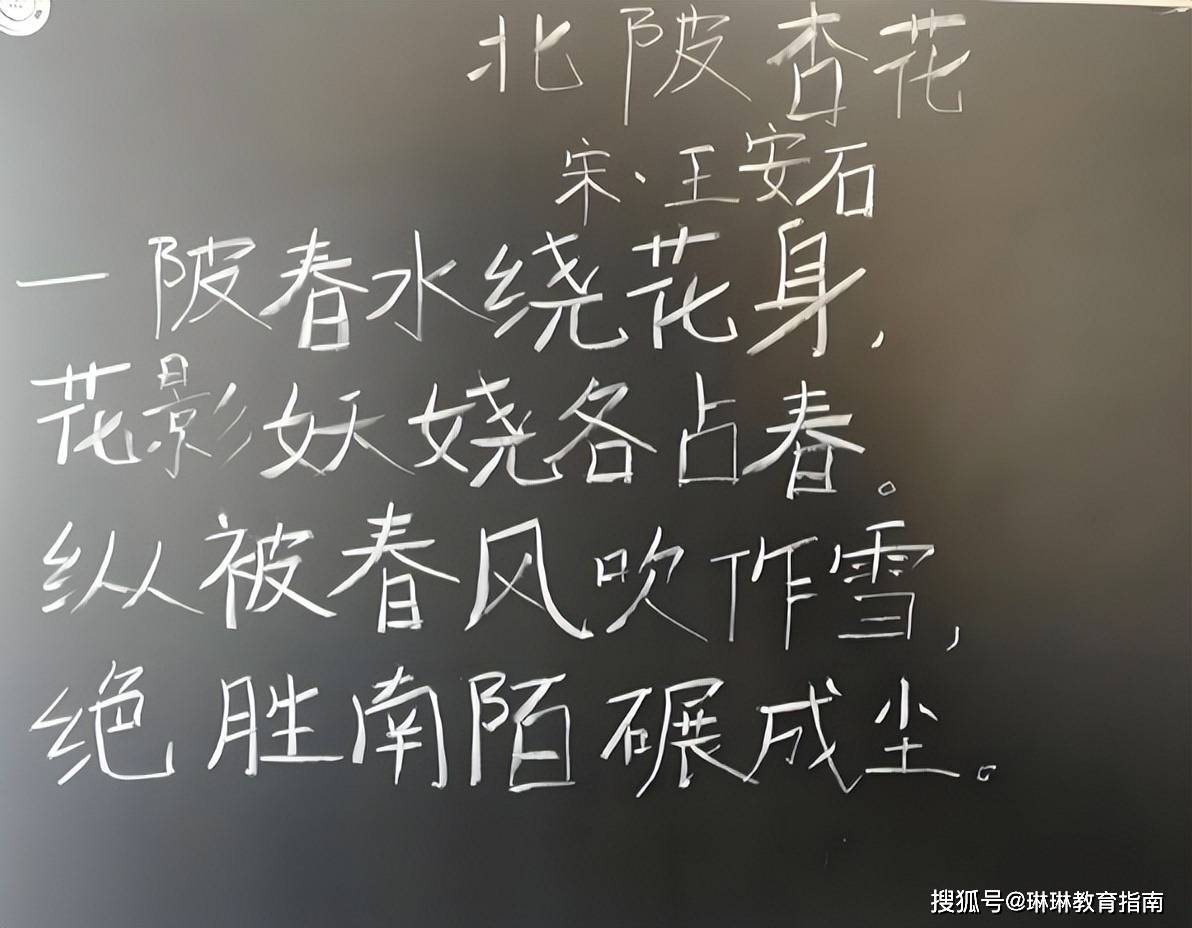 北陂杏花
宋·王安石
一陂春水绕花身,
花影妖娆各占春。
纵被春风吹作雪,
绝胜南陌碾成尘。
搜狐号@琳琳教育指南